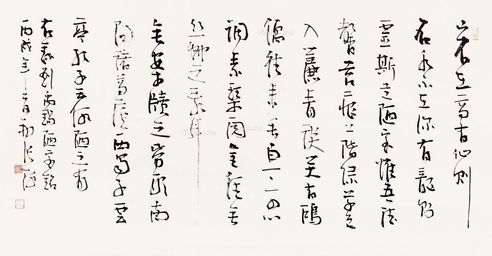 山不在高有仙則
名水不在深有龍則
靈斯是陋室惟吾德
馨苔痕上階綠草色
入簾青談笑有鴻
儒往來無白丁可以
調素琴閱金經無
絲竹之亂耳
無案牘之勞形南
陽諸葛廬西蜀子雲
亭孔子云何陋之有
右錄劉禹錫陋室銘
丙戌年